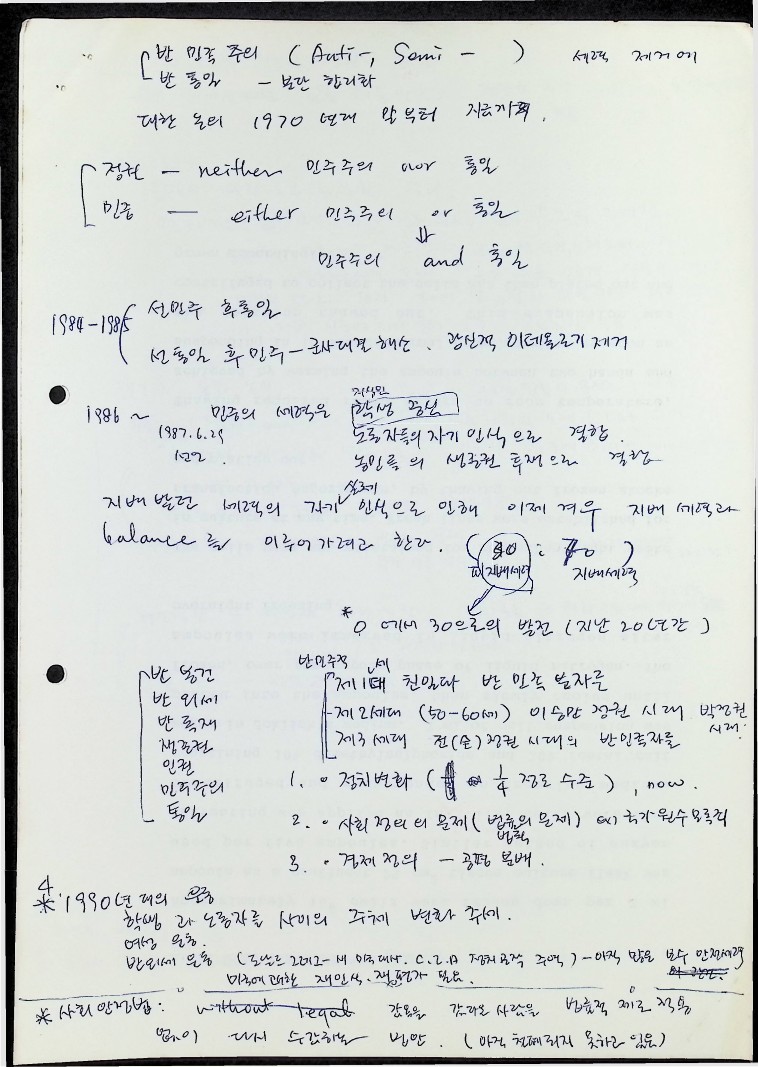 반 민족 주의 (Anti-, Semi - ) 세력 제거에
반 통일 - 분단 합리화
대한 논의 1970 년대 말 부터 지금까지.
정권 - neither 민주주의 nor 통일
민중 - either 민주주의 or 통일
⇓
민주주의 and 통일
1984-1985 선민주 후통일
선통일 후 민주 - 군사대결 해소. 광신적 이데올로기 제거
지식인
1986 ~ 민중의 세력은 학생 중심
1987.6.29 노동자들의 자기 인식으로 결합.
선언. 농민들의 생존권 투쟁으로 결합
실체
지배 받던 세력의 자기 인식으로 인해 이제 겨우 지배 세력과
balance 를 이루어가려고 한다. ( 30 : 70 )
피지배세력 지배세력
* 0 에서 30으로의 발전 (지난 20년간)
반민주적
반 봉건 제1세대 친일파 반 민족 분자들
반 외세 제2세대 (50-60세) 이승만 정권 시대. 박정권 시대.
반 독재 제3세대 전(全)정권 시대의 반민족자들
생존권
인권
민주주의
통일
1. ◦ 정치변화 ( 1/4 정도 수준 ), now.
2. ◦ 사회 정의의 문제 ( 법률의 문제 ) ex) 국가원수모독죄
법학
3. ◦ 경제 정의 - 공평 분배.
4
* 1990년대의 운동
학생과 노동자들 사이의 주체 변화 추세.
여성 운동.
반외세 운동 (도날드 그레그 - 새 미국대사. C.I.A 정치공작 주역) - 아직 많은 보수 안정세력
미국에 대한 재인식. 재평가 필요.
* 사회안전법: without legal 감옥을 갔다온 사람을 법률적 제도 적용
없이 다시 수감하는 법안. (아직 철폐되지 못하고 있음)